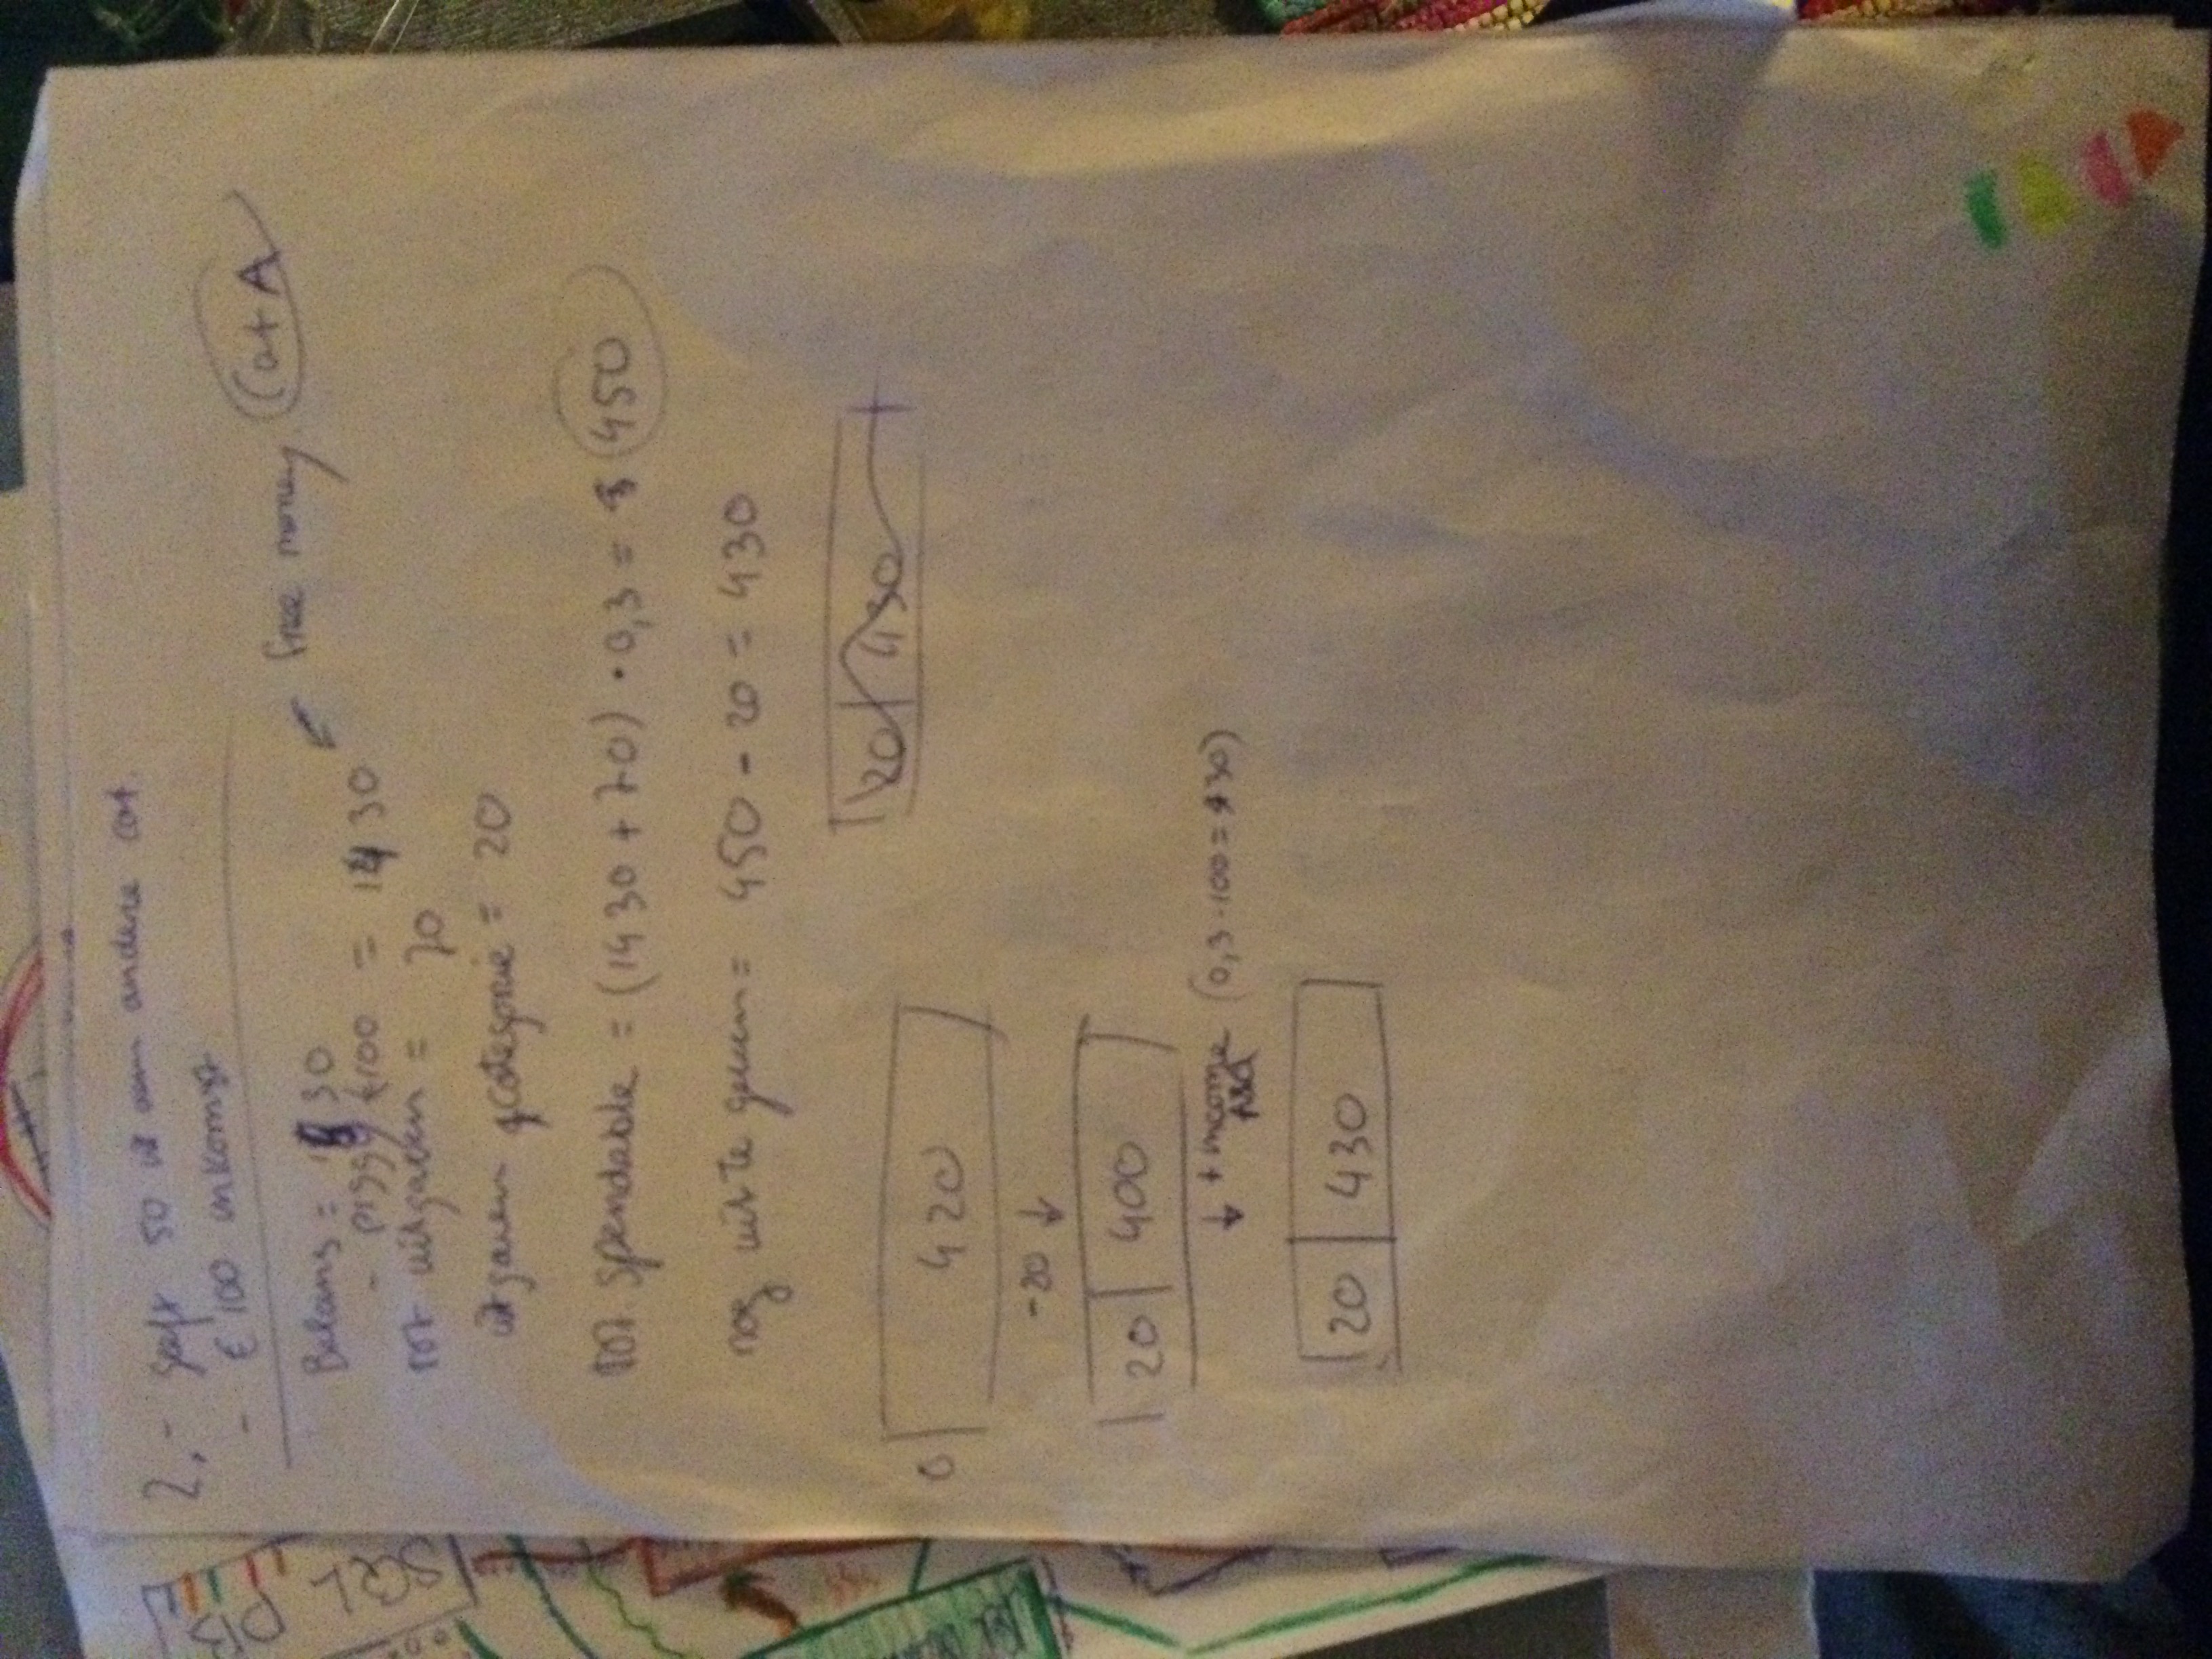 2. - geeft 50 uit aan andere cat.
- € 100 inkomst
free money Cat A
Balans = 1530
- piggy €100 = 1430
tot uitgaven = 70
uitgaven categorie = 20
tot spendable = (1430 + 70) · 0,3 = 450
nog uit te geven = 450 - 20 = 430
20 | 430
0 420
-20 ↓
20 | 400
↓ + income (0,3 · 100 = 30)
20 | 430
SQL